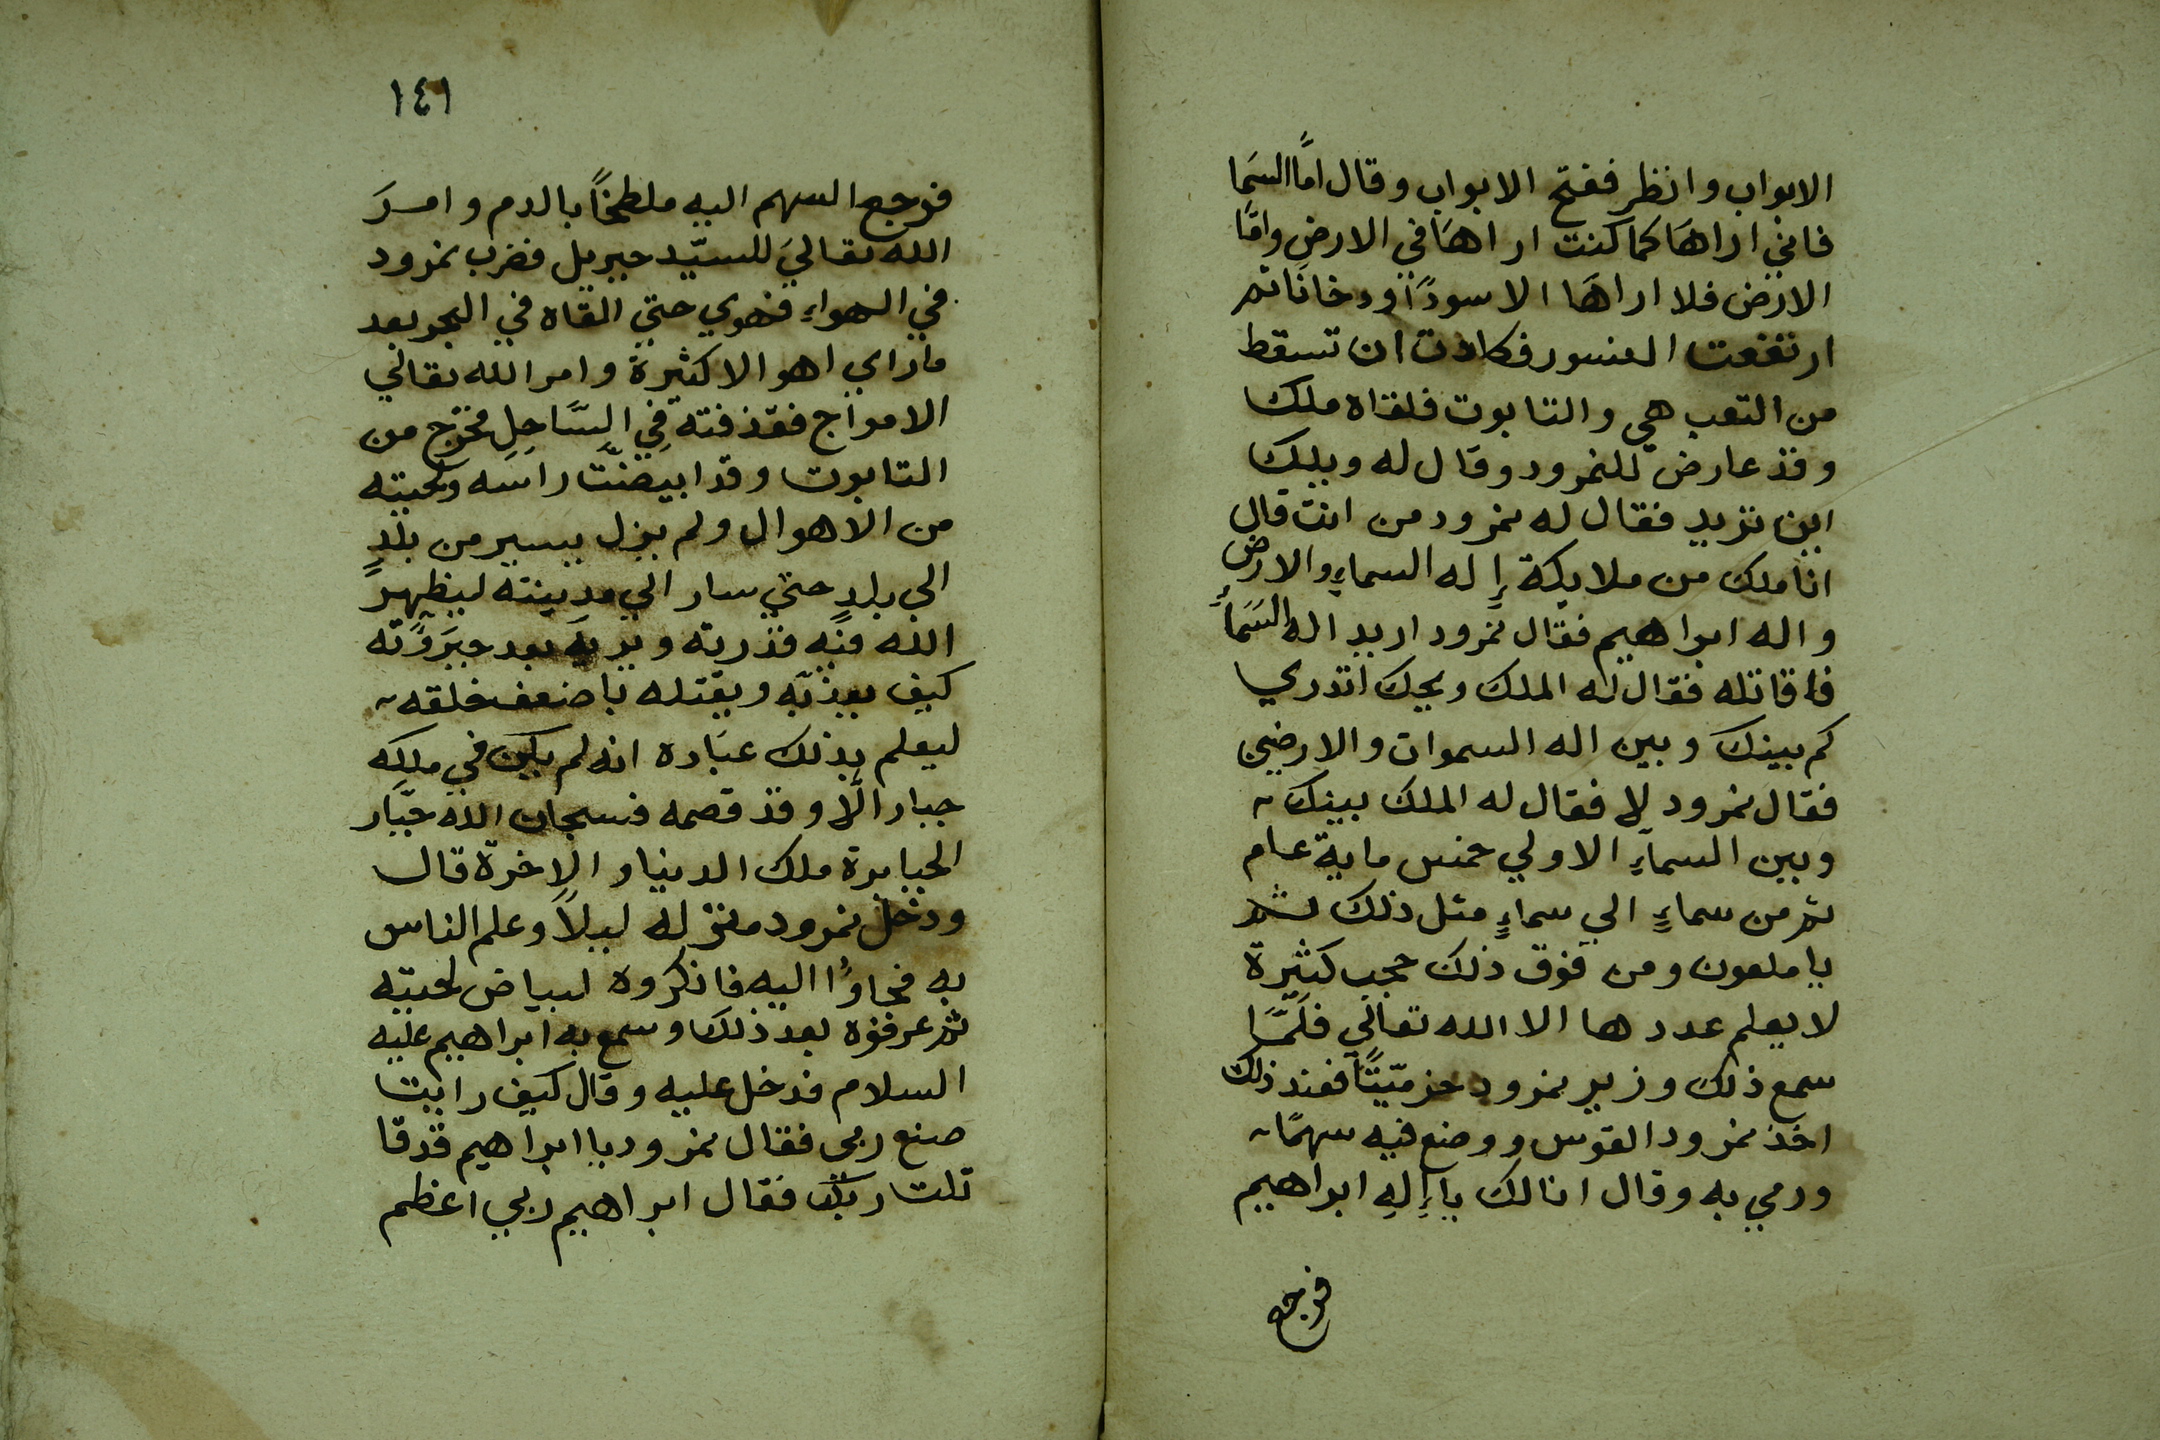 الابواب وانظر ففتح الابواب وقال امًا السَما
فاني اراهَا كما كنت اراهَا في الارضِ وامّا
الارض فلا اراهَا الا سودًا ودخانَا ثم
ارتفعت النسور فكادت ان تسقط
من التعب هي والتابوت فلقاه ملك
وقد عارض للنمرود وقال له ويلك
اين تريد فقال له نمرود من انت قال
انا ملك من ملايكة إله السماءِ والارض
واله ابراهيم فقال نمرود اريد اله السَمَاءِ
فاقاتله فقال له الملك ويحك اتدري
كم بينك وبين اله السموات والارضين
فقال نمرود لا فقال له الملك بينك
وبين السمآءِ الاولي خمس ماية عام
ثم من سماءٍ الي سماءٍ مثل ذلك ثم
يا ملعون ومن فوق ذلك حجب كثيرة
لا يعلم عددها الا الله تعالي فلَمَّا
سمع ذلك وزير نمرود خر ميّتًا فعند ذلك
اخذ نمرود القوس ووضع فيه سهمًا
ورمي به وقال انا لك يا إلهِ ابراهيم
فرجع
١٤١
فرجع السهم اليه ملطخاً بالدم وامرَ
الله تعاليَ للسيّد جبريل فضرب نمرود
في الهواءِ فهوي حتي القاه في البحر بعد
ما راي اهوالا كثيرة وامر الله تعالي
الامواج فقذفته فِي السَّاحِلِ فخرج من
التابوت وقد ابيضّت راسه ولحيته
من الاهوال ولم يزل يسير من بلدٍ
الي بلدٍ حتي سار الي مدينته ليظهِرَ
الله فيه قدرته ويريه بعد جبَروَته
كيف يعذّبه ويقتله باضعف خلقه
ليعلم بذلك عبَاده انه لم يكن في ملكِه
جبار الّا وقد قصمه فسبحان الله جبّار
الجبابرة ملك الدنيا والاخرة قال
ودخل نمرود منزله ليلاً وعلم الناس
به فجاوُا اليه فانكروه لبياض لحيته
ثم عرفوه بعد ذلك وسمع به ابراهيم عليه
السلام فدخل عليه وقال كيف رايت
صنع ربي فقال نمرود يا ابراهيم قد قا
تلت ربّك فقال ابراهيم ربي اعظم